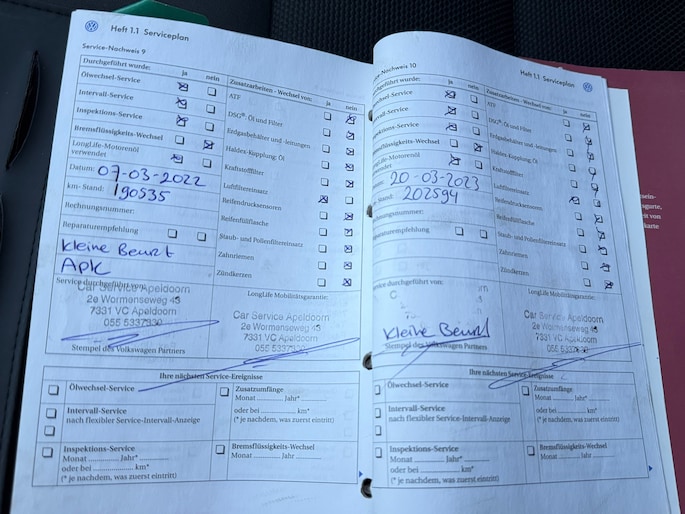 Heft 1.1 Serviceplan
Service-Nachweis 9
Durchgeführt wurde: ja nein
Ölwechsel-Service
Intervall-Service
Inspektions-Service
Bremsflüssigkeits-Wechsel
LongLife-Motorenöl
verwendet
Datum: 07-03-2022
km-Stand: 190535
Rechnungsnummer:
Reparaturempfehlung
Kleine Beurt
APK
Zusatzarbeiten - Wechsel von: ja nein
ATF
DSG®-Öl und Filter
Erdgasbehälter und -leitungen
Haldex-Kupplung: Öl
Kraftstofffilter
Luftfiltereinsatz
Reifendrucksensoren
Reifenfüllflasche
Staub- und Pollenfiltereinsatz
Zahnriemen
Zündkerzen
Service durchgeführt von:
Car Service Apeldoorn
2e Wormenseweg 43
7331 VC Apeldoorn
055 5337930
Stempel des Volkswagen Partners
LongLife Mobilitätsgarantie:
Car Service Apeldoorn
2e Wormenseweg 43
7331 VC Apeldoorn
055 5337930
Ihre nächsten Service-Ereignisse
Ölwechsel-Service
Intervall-Service
nach flexibler Service-Intervall-Anzeige
Inspektions-Service
Monat Jahr*
oder bei km*
(* je nachdem, was zuerst eintritt)
Zusatzumfänge
Monat Jahr*
oder bei km*
(* je nachdem, was zuerst eintritt)
Bremsflüssigkeits-Wechsel
Monat Jahr
Heft 1.1 Serviceplan
Service-Nachweis 10
Durchgeführt wurde: ja nein
Ölwechsel-Service
Intervall-Service
Inspektions-Service
Bremsflüssigkeits-Wechsel
LongLife-Motorenöl
verwendet
Datum: 20-03-2023
Stand: 202594
Rechnungsnummer:
Reparaturempfehlung
Zusatzarbeiten - Wechsel von: ja nein
ATF
DSG®-Öl und Filter
Erdgasbehälter und -leitungen
Haldex-Kupplung: Öl
Kraftstofffilter
Luftfiltereinsatz
Reifendrucksensoren
Reifenfüllflasche
Staub- und Pollenfiltereinsatz
Zahnriemen
Zündkerzen
Service durchgeführt von:
Kleine Beurt
Stempel des Volkswagen Partners
LongLife Mobilitätsgarantie:
Car Service Apeldoorn
2e Wormenseweg 43
7331 VC Apeldoorn
Ihre nächsten Service-Ereignisse
Ölwechsel-Service
Intervall-Service
nach flexibler Service-Intervall-Anzeige
Inspektions-Service
Monat Jahr*
oder bei km*
(* je nachdem, was zuerst eintritt)
Zusatzumfänge
Monat Jahr*
oder bei km*
(* je nachdem, was zuerst eintritt)
Bremsflüssigkeits-Wechsel
Monat Jahr